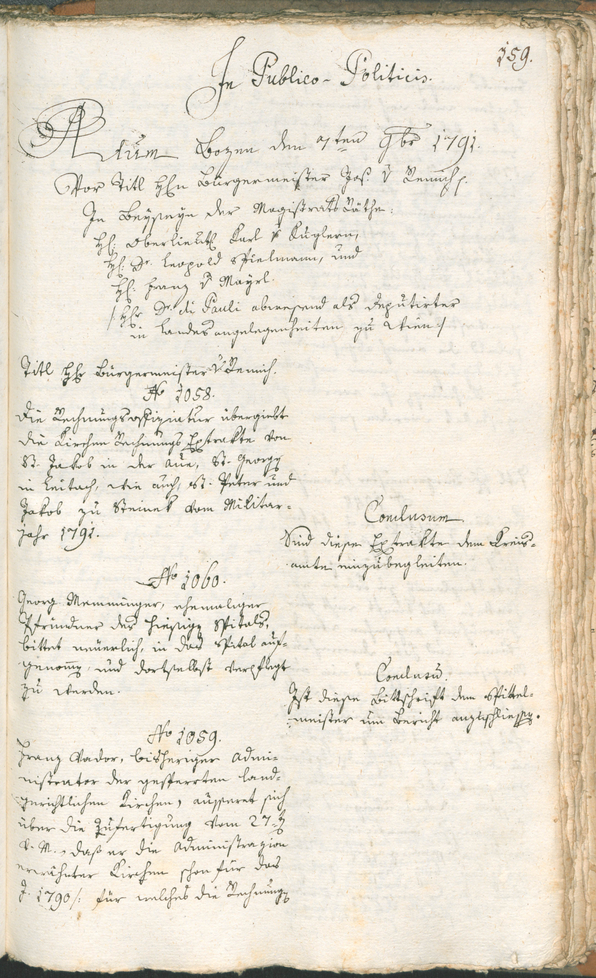 159.
In Publico-Politicis.
Actum Bozen den 7ten 9br 1791.
Vor Titl Hhn Bürgermeister Jos. v Remich.
In Beyseyn der Magistrats Räthe:
Hl. Oberlieut Karl v Kuglern,
Hl. Dr. Leopold Spielmann, und
Hl. Franz v Mayrl.
/: Hhr Dr. di Pauli abwesend als deputirter
in Landesangelegenheiten zu Wien :/
Titl Hhr Bürgermeister v Remich.
No 1058.
Die Rechnungsoffiziatur übergiebt
die Kirchen Rechnungs Extrakte von
St. Jakob in der Aue, St. Georgy
in Leitach, wie auch, St. Peter und
Jakob zu Steinek vom Militar-
jahr 1791.
Conclusum
Sind diese Extrakte dem Kreis-
amte einzubegleiten.
No 1060.
Georg Memminger, ehemaliger
Pfründner des hiesigen Spitals,
bittet neuerlich, in das Spital auf-
genomm und dortselbst verpflegt
zu werden.
Conclusū.
Ist diese Bittschrift dem Spittel-
meister um Bericht anzuschliessen.
No 1059.
Franz Vador, bisheriger Admi-
nistrator der gesperrten land-
gerichtlichen Kirchen, äussert sich
über die Zufertigung vom 27.
v. M., daß er die Administrazion
erwähnter Kirchen schon für das
J. 1790 /: für welches die Rechnung